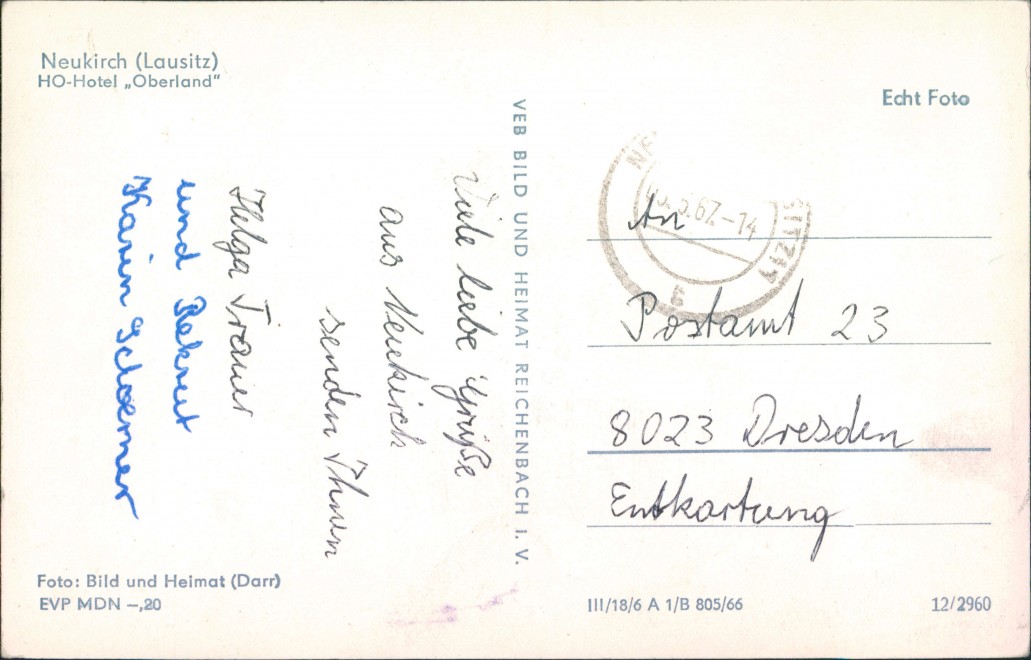 Neukirch (Lausitz)
HO-Hotel „Oberland"
Viele liebe Grüße
aus Neukirch
senden Ihnen
Helga
und Rekrut
Karin
Foto: Bild und Heimat (Darr)
EVP MDN –,20
VEB BILD UND HEIMAT REICHENBACH I. V.
Echt Foto
.67.-14
An
Postamt 23
8023 Dresden
Entkartung
III/18/6 A 1/B 805/66
12/2960